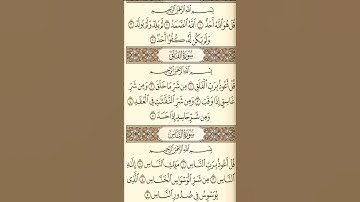 بِسْمِ ٱللَّهِ ٱلرَّحْمَٰنِ ٱلرَّحِيمِ
قُلْ هُوَ ٱللَّهُ أَحَدٌ ١ ٱللَّهُ ٱلصَّمَدُ ٢ لَمْ يَلِدْ وَلَمْ يُولَدْ ٣
وَلَمْ يَكُن لَّهُۥ كُفُوًا أَحَدٌۢ ٤
سُورَةُ ٱلْفَلَقِ
بِسْمِ ٱللَّهِ ٱلرَّحْمَٰنِ ٱلرَّحِيمِ
قُلْ أَعُوذُ بِرَبِّ ٱلْفَلَقِ ١ مِن شَرِّ مَا خَلَقَ ٢ وَمِن شَرِّ
غَاسِقٍ إِذَا وَقَبَ ٣ وَمِن شَرِّ ٱلنَّفَّٰثَٰتِ فِى ٱلْعُقَدِ ٤
وَمِن شَرِّ حَاسِدٍ إِذَا حَسَدَ ٥
سُورَةُ ٱلنَّاسِ
بِسْمِ ٱللَّهِ ٱلرَّحْمَٰنِ ٱلرَّحِيمِ
قُلْ أَعُوذُ بِرَبِّ ٱلنَّاسِ ١ مَلِكِ ٱلنَّاسِ ٢
إِلَٰهِ ٱلنَّاسِ ٣ مِن شَرِّ ٱلْوَسْوَاسِ ٱلْخَنَّاسِ ٤ ٱلَّذِى
يُوَسْوِسُ فِى صُدُورِ ٱلنَّاسِ ٥